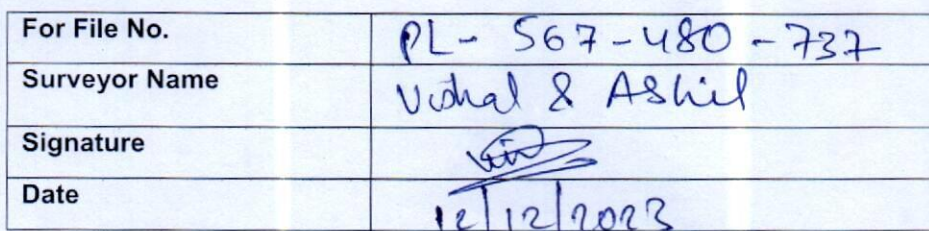 For File No. PL- 567-480-737
Surveyor Name Vishal & Ashil
Signature
Date 12/12/2023